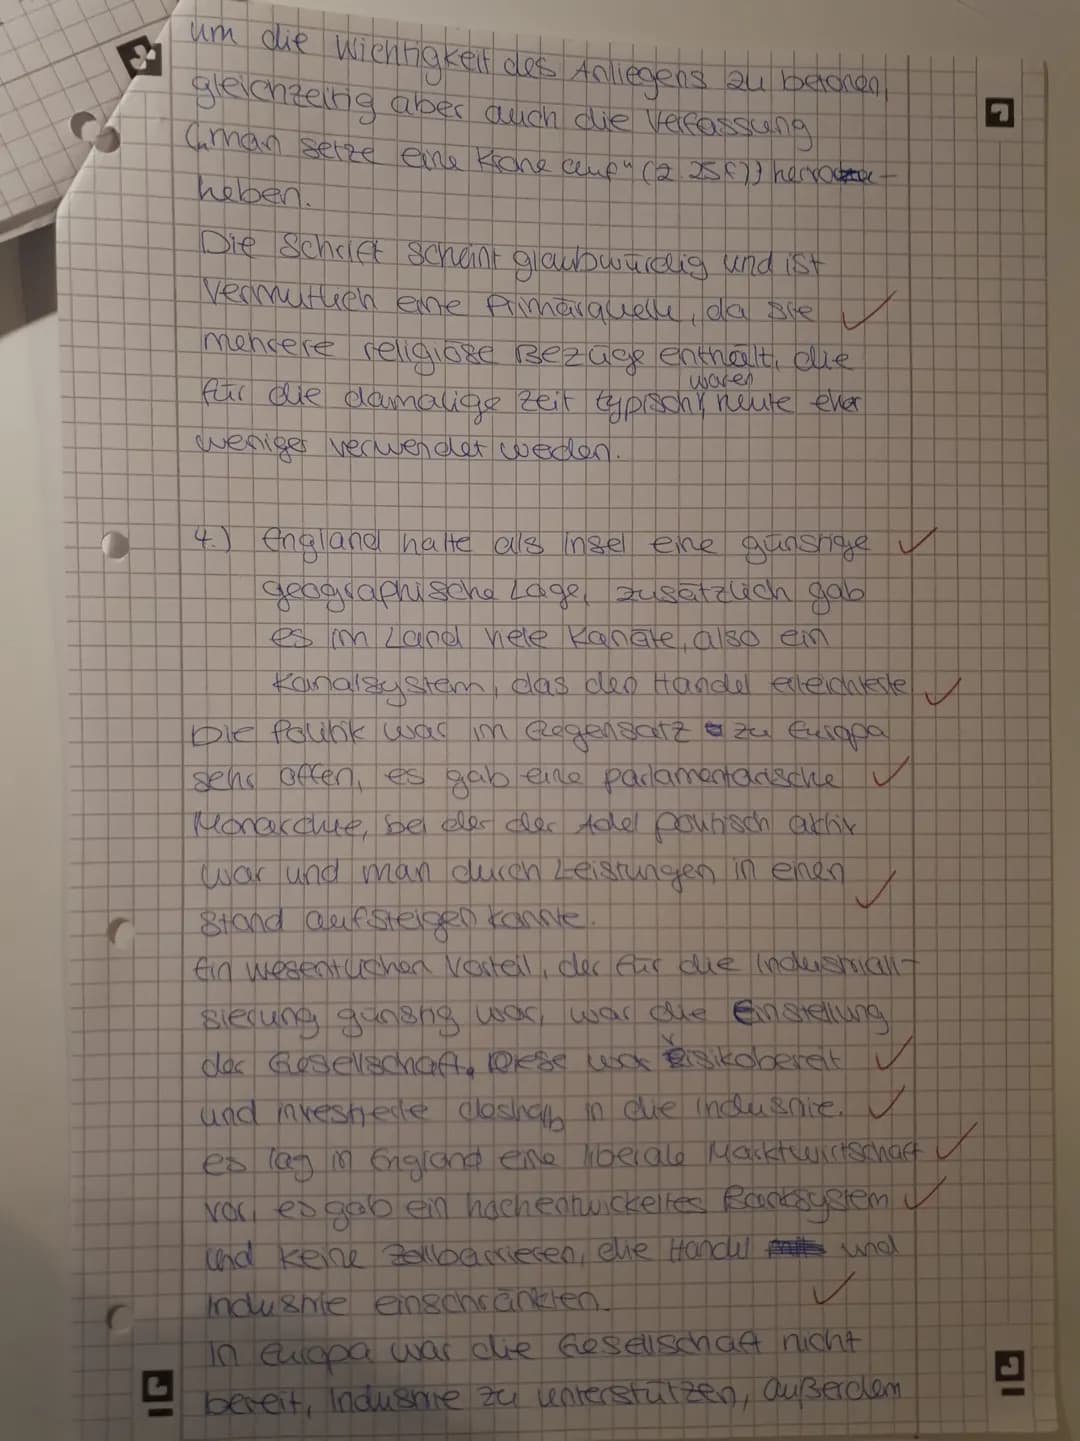 um die Wichtigkeit des Anliegens zu betonen,
gleichzeitig aber auch die Verfassung
(„man setze eine Krone auf" (Z. 25f)) hervor-
heben.
Die Schrift scheint glaubwürdig und ist
vermutlich eine Primärquelle, da sie
mehrere religiöse Bezüge enthält, die
waren
für die damalige Zeit typisch, heute eher
weniger verwendet weden.
4.) England hatte als Insel eine günstige
geographische Lage, zusätzlich gab
es im Land viele Kanäle, also ein
Kanalsystem, das den Handel erleichterte
Die Politik war im Gegensatz zu Europa
sehr offen, es gab eine parlamentarische
Monarchie, bei der der Adel politisch aktiv
war und man durch Leistungen in einen
Stand aufsteigen konnte.
Ein wesentlichen Vorteil, der für die Industriali-
sierung günstig war, war die Einstellung
der Gesellschaft. Diese war risikobereit
und investierte deshalb in die Industrie.
es lag in England eine liberale Marktwirtschaft
vor, es gab ein hochentwickeltes Banksystem
und keine Zollbarrieren, die Handel und
Industrie einschränkten.
In Europa war die Gesellschaft nicht
bereit, Industrie zu unterstützen, außerdem